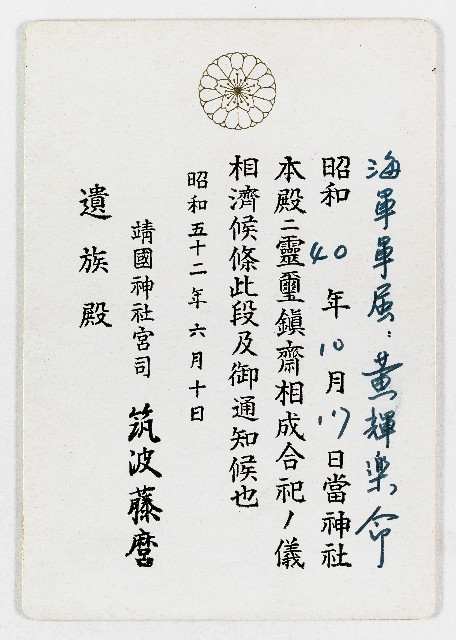 海軍軍属 黄輝楽命
昭和40年10月17日當神社
本殿ニ靈璽鎭齋相成合祀ノ儀
相濟候條此段及御通知候也
昭和五十二年六月十日
靖國神社宮司 筑波藤麿
遺族殿